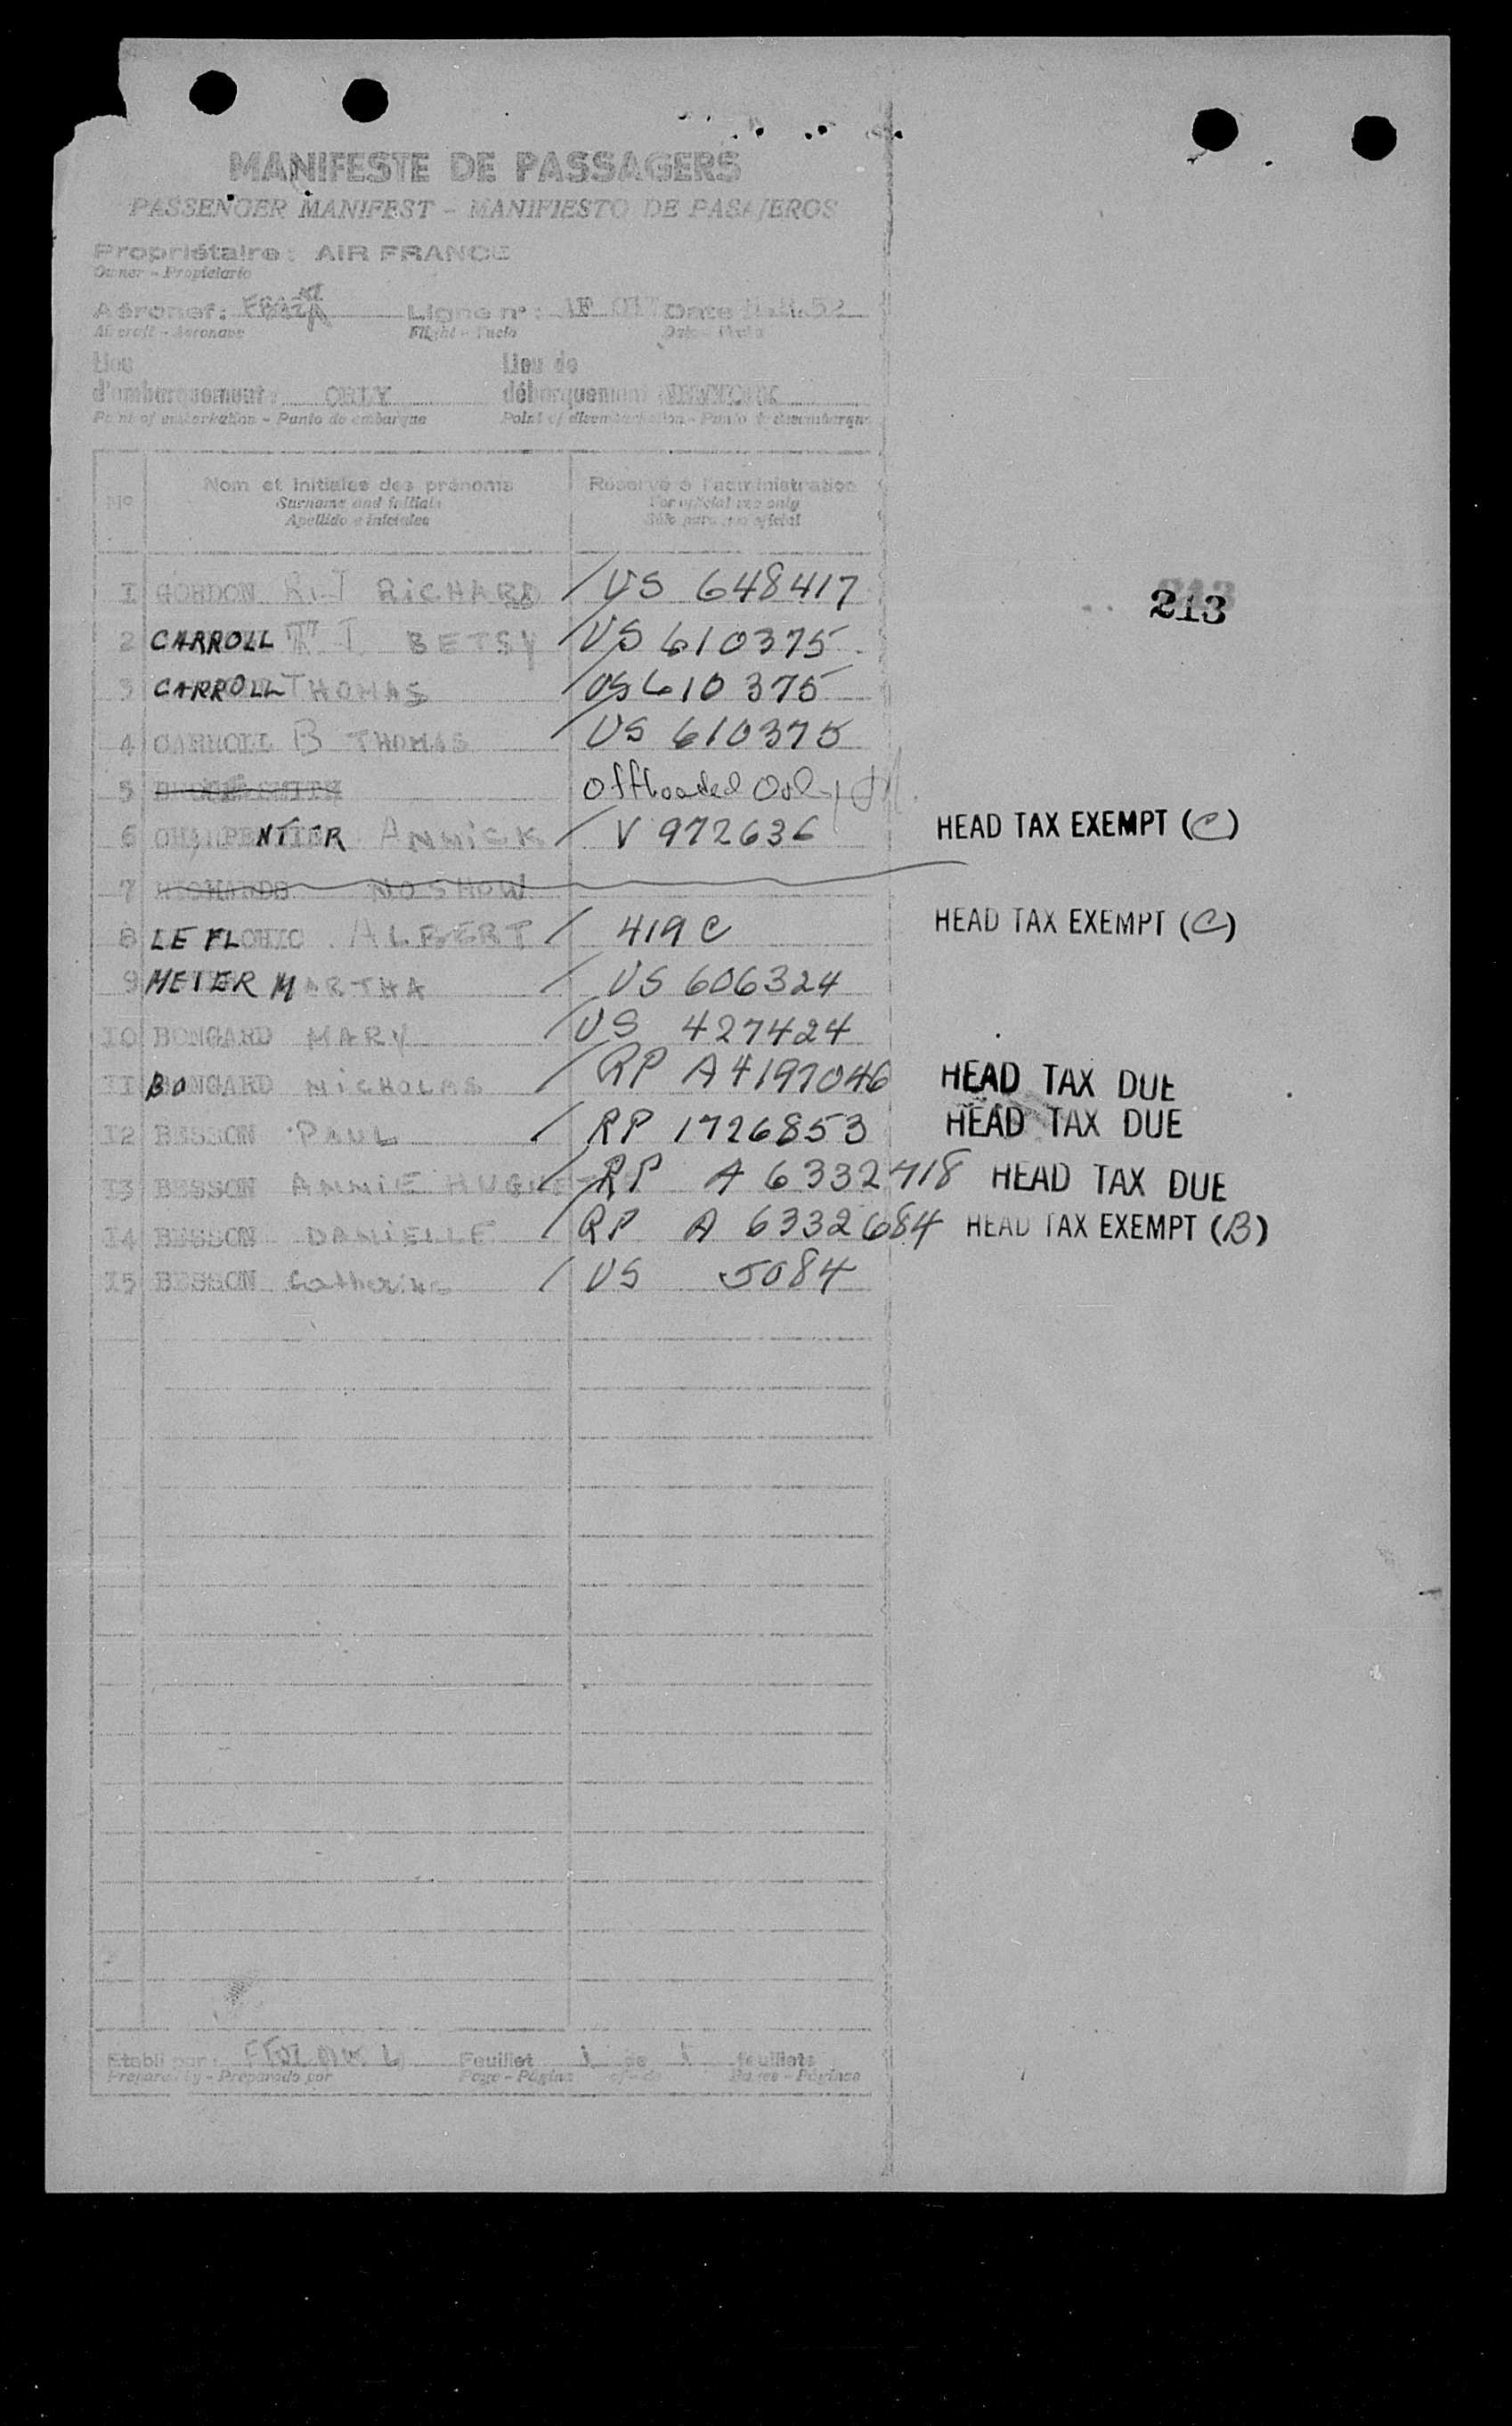 MANIFESTE DE PASSAGERS
PASSENGER MANIFEST - MANIFIESTO DE PASAJEROS
Propriétaire: AIR FRANCE
Owner - Propietario
Aéronef: Ligne n°: AF 017 Date
Aircraft - Aeronave Flight - Vuelo Date - Fecha
Lieu d'embarquement: ORLY Lieu de débarquement NEWYORK
Point of embarkation - Punto de embarque Point of disembarkation - Punto de desembarque
N° Nom et initiales des prénoms Réservé à l'administration
Surname and initials For official use only
Apellido e iniciales Sólo para uso oficial
1 GORDON R.J RICHARD / US 648417
213
2 CARROLL T. J. BETSY / US 610375
3 CARROLL THOMAS / US 610 375
4 CARROLL B THOMAS / US 610375
5 Offloaded Orly
6 CHARPENTIER ANNICK / V 972636 HEAD TAX EXEMPT (C)
7 RICHARDS NO SHOW
8 LE FLOHIC ALBERT / 419 C HEAD TAX EXEMPT (C)
9 MEIER MARTHA / US 606324
10 BONGARD MARY / US 427424
11 BONGARD NICHOLAS / RP A4197046 HEAD TAX DUE
12 BESSON PAUL / RP 1726853 HEAD TAX DUE
13 BESSON ANNIE HUGUETTE / RP A 6332718 HEAD TAX DUE
14 BESSON DANIELLE / RP A 6332684 HEAD TAX EXEMPT (B)
15 BESSON Catherine / US 5084
Etabli par: Feuillet 1 de 1 feuillets
Prepared by - Preparado por Page - Página of - de Pages - Páginas